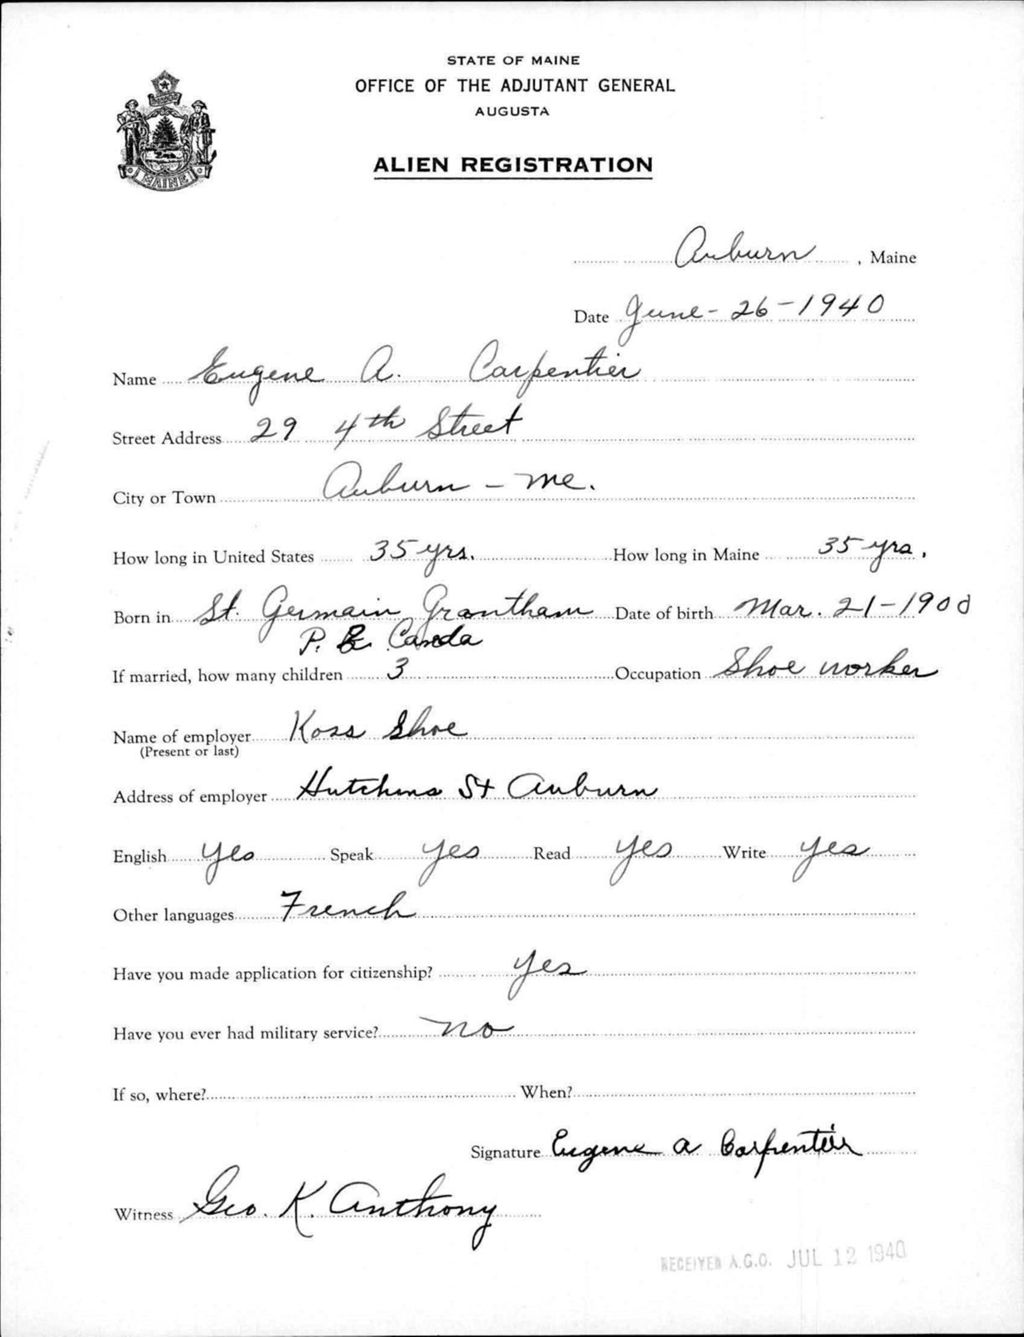 STATE OF MAINE
OFFICE OF THE ADJUTANT GENERAL
AUGUSTA
ALIEN REGISTRATION
MAINE
Auburn, Maine
Date June-26-1940
Name Eugene A. Carpentier
Street Address 29 4th Street
City or Town Auburn - Me.
How long in United States 35 yrs. How long in Maine 35 yrs.
Born in St. Germain Grantham Date of birth Mar. 21-1900
P. Canda
If married, how many children 3 Occupation Shoe worker
Name of employer Koss Shoe
(Present or last)
Address of employer Hutchins St Auburn
English yes Speak yes Read yes Write yes
Other languages French
Have you made application for citizenship? yes
Have you ever had military service? no
If so, where? When?
Signature Eugene A Carpentier
Witness Geo. K. Anthony
RECEIVED A.G.O. JUL 12 1940